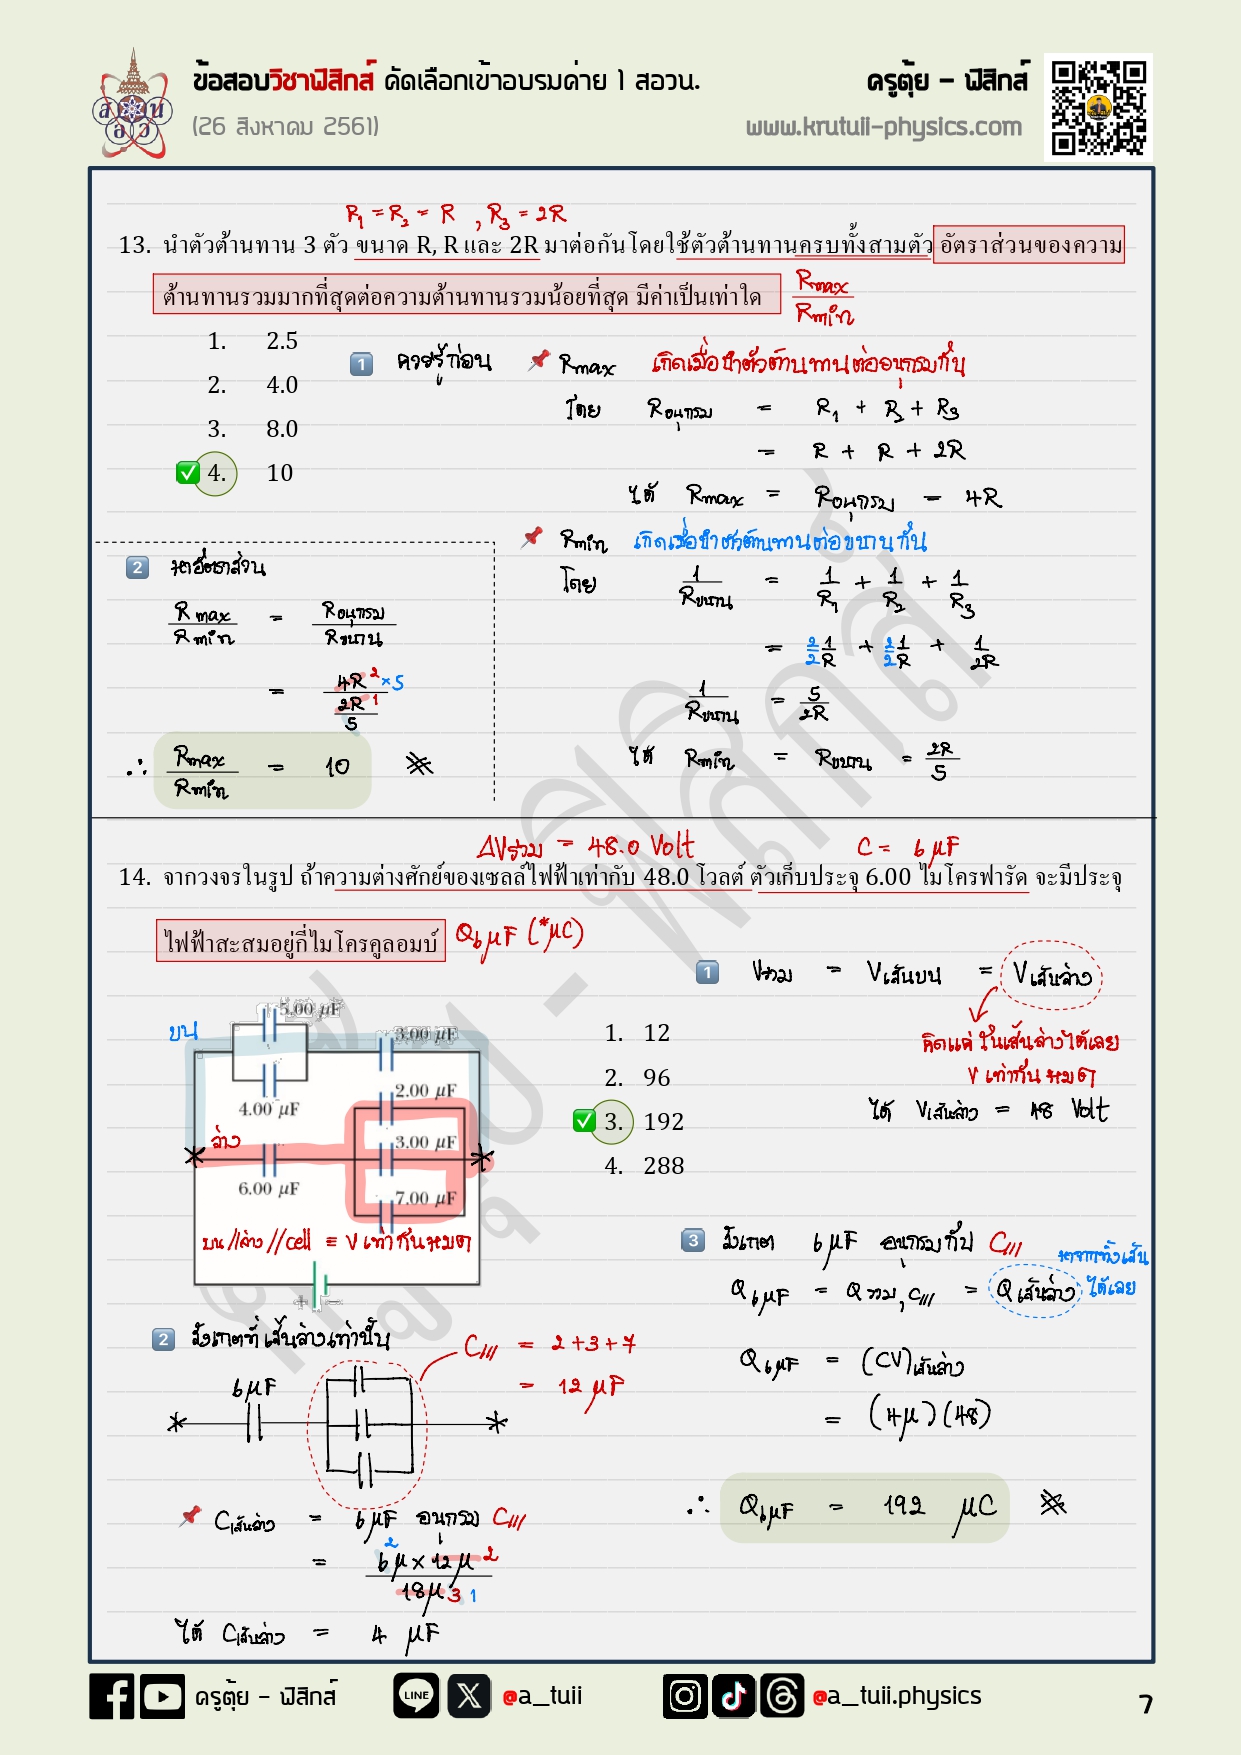 ข้อสอบวิชาฟิสิกส์ คัดเลือกเข้าอบรมค่าย 1 สอวน.
(26 สิงหาคม 2561)
ครูตุ้ย – ฟิสิกส์
www.krutuii-physics.com
R₁ = R₂ = R , R₃ = 2R
13. นำตัวต้านทาน 3 ตัว ขนาด R, R และ 2R มาต่อกันโดยใช้ตัวต้านทานครบทั้งสามตัว อัตราส่วนของความ
ต้านทานรวมมากที่สุดต่อความต้านทานรวมน้อยที่สุด มีค่าเป็นเท่าใด
Rmax / Rmin
1. 2.5
2. 4.0
3. 8.0
4. 10
1 ควรรู้ก่อน
Rmax เกิดเมื่อนำตัวต้านทานต่ออนุกรมกัน
โดย Rอนุกรม = R₁ + R₂ + R₃
= R + R + 2R
ได้ Rmax = Rอนุกรม = 4R
Rmin เกิดเมื่อนำตัวต้านทานต่อขนานกัน
โดย 1/Rขนาน = 1/R₁ + 1/R₂ + 1/R₃
= 2/2 1/R + 2/2 1/R + 1/2R
1/Rขนาน = 5/2R
ได้ Rmin = Rขนาน = 2R/5
2 หาอัตราส่วน
Rmax/Rmin = Rอนุกรม/Rขนาน
= 4R 2 ×5 / 2R 1 / 5
∴ Rmax/Rmin = 10
ΔVรวม = 48.0 Volt
C = 6 μF
14. จากวงจรในรูป ถ้าความต่างศักย์ของเซลล์ไฟฟ้าเท่ากับ 48.0 โวลต์ ตัวเก็บประจุ 6.00 ไมโครฟารัด จะมีประจุ
ไฟฟ้าสะสมอยู่กี่ไมโครคูลอมบ์
Q6μF (*μC)
1. 12
2. 96
3. 192
4. 288
บน
5.00 μF
3.00 μF
4.00 μF
2.00 μF
ล่าง
3.00 μF
6.00 μF
7.00 μF
บน//ล่าง//cell ≡ V เท่ากันหมด
+ −
1 Vรวม = Vเส้นบน = Vเส้นล่าง
คิดแค่ในเส้นล่างได้เลย
V เท่ากันหมด
ได้ Vเส้นล่าง = 48 Volt
2 สังเกตที่เส้นล่างเท่านั้น
C/// = 2+3+7
= 12 μF
6μF
Cเส้นล่าง = 6μF อนุกรม C///
= 6μ 2 × 12μ 2 / 18μ 3 1
ได้ Cเส้นล่าง = 4 μF
3 สังเกต 6μF อนุกรมกับ C///
หาจากทั้งเส้น
ได้เลย
Q6μF = Qรวม,C/// = Qเส้นล่าง
Q6μF = (CV)เส้นล่าง
= (4μ)(48)
∴ Q6μF = 192 μC
ครูตุ้ย – ฟิสิกส์
LINE
@a_tuii
@a_tuii.physics
7